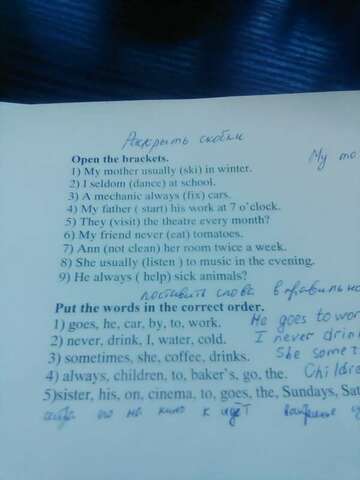 Раскрыть скобки
Open the brackets.
My mo
1) My mother usually (ski) in winter.
2) I seldom (dance) at school.
3) A mechanic always (fix) cars.
4) My father ( start) his work at 7 o'clock.
5) They (visit) the theatre every month?
6) My friend never (eat) tomatoes.
7) Ann (not clean) her room twice a week.
8) She usually (listen ) to music in the evening.
9) He always ( help) sick animals?
поставить слова в правильно
Put the words in the correct order.
1) goes, he, car, by, to, work. He goes to wor
2) never, drink, I, water, cold. I never drin
3) sometimes, she, coffee, drinks. She somet
4) always, children, to, baker's, go, the. Childre
5)sister, his, on, cinema, to, goes, the, Sundays, Sat
его на кино к идёт